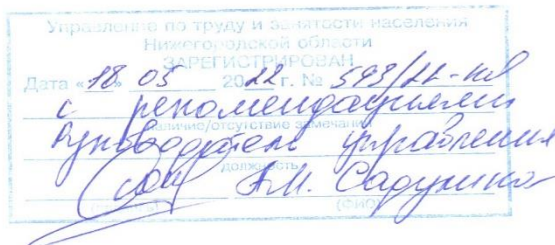 Управление по труду и занятости населения
Нижегородской области
ЗАРЕГИСТРИРОВАН
Дата «18» 05 2022 г. №
с рекомендациями
наличие/отсутствие замечаний
Руководитель управления
должность
А.М. Садулина
(ФИО)